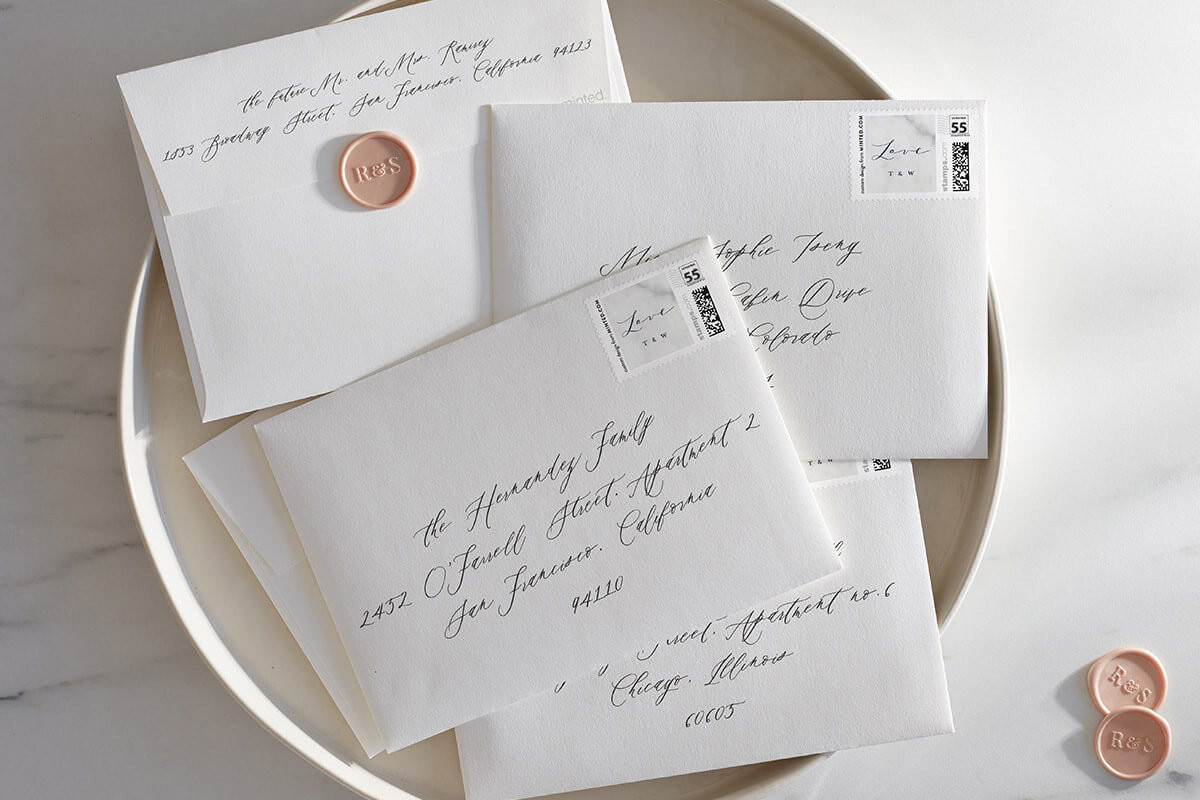 the future Mr. and Mrs. Ramirez
1853 Broadway Street, San Francisco, California 94123
R&S
minted.
custom design from MINTED.COM
Love
T & W
stamps.com
55
Sophie Tseng
Drive
Colorado
custom design from MINTED.COM
Love
T & W
stamps.com
55
the Hernandez Family
2452 O'Farrell Street, Apartment 2
San Francisco, California
94110
T & W
Apartment no. 6
Chicago, Illinois
60605
R&S
R&S